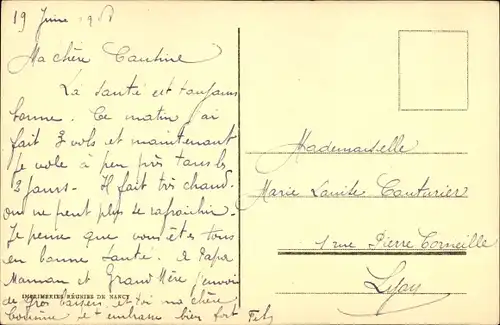 19 Juin
Ma chère Cousine
La santé est toujours
bonne. Ce matin j'ai
fait 3 vols et maintenant
je vole à peu près tous les
2 jours - Il fait très chaud.
on ne peut plus se rafraichir.
Je pense que vous êtes tous
en bonne santé. à Papa
Maman et Grand Mère j'envoie
de gros baisers et toi ma chère
cousine je t'embrasse bien fort
IMPRIMERIES RÉUNIES DE NANCY
Mademoiselle
Marie Louise Couturier
1 rue Pierre Corneille
Lyon